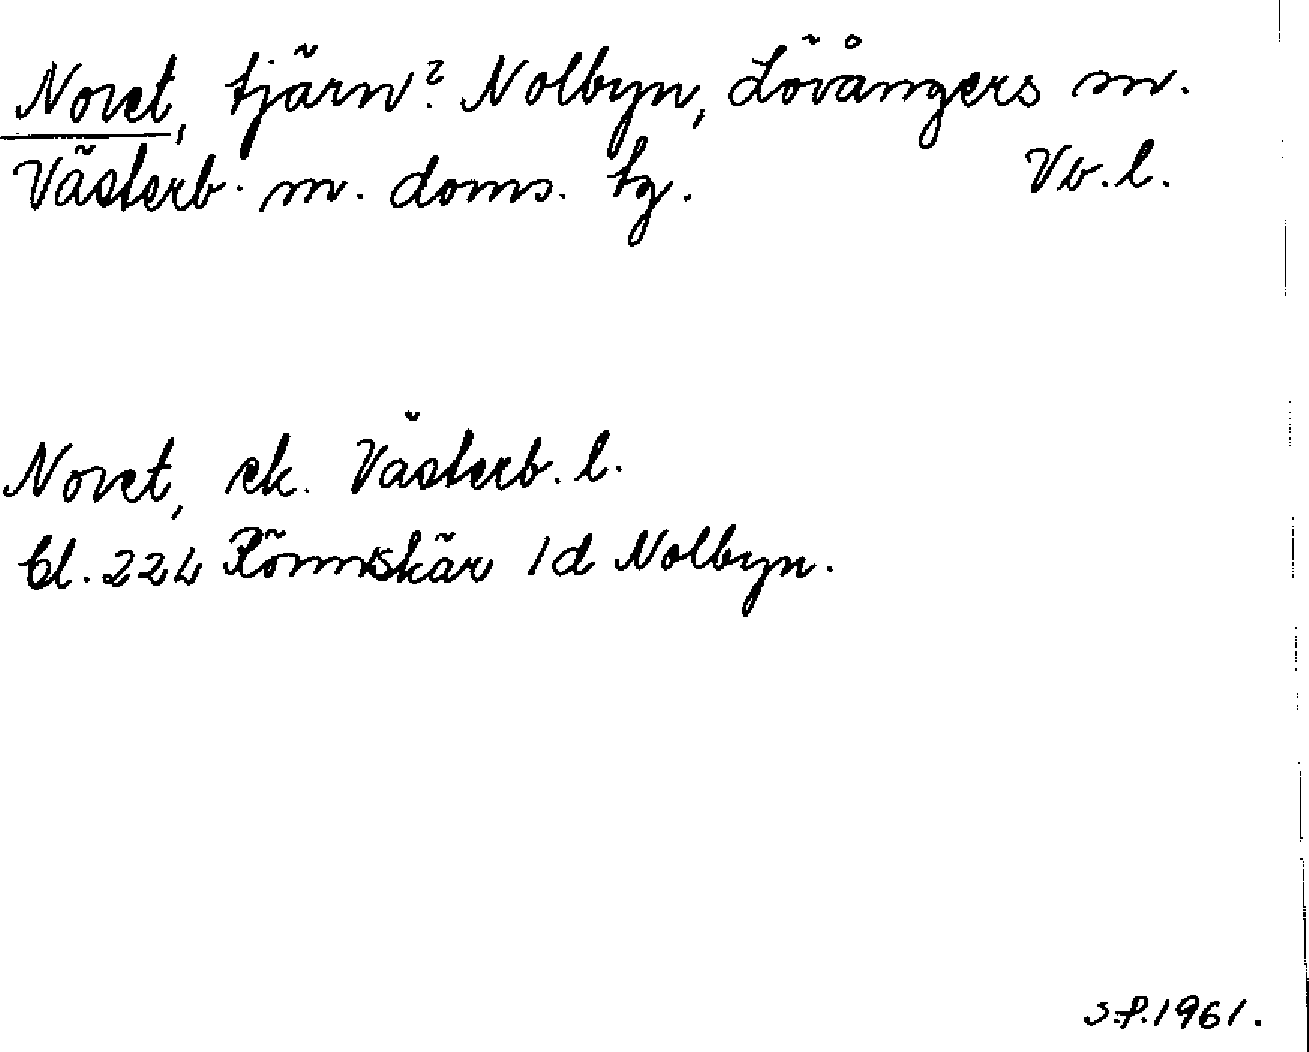 Noret, tjärn? Nolbyn, Lövångers sn.
Västerb. n. doms. tg. Vb. l.
Noret, ek. Västerb. l.
bl. 224 Rönnskär 1d Nolbyn.
S.P. 1961.